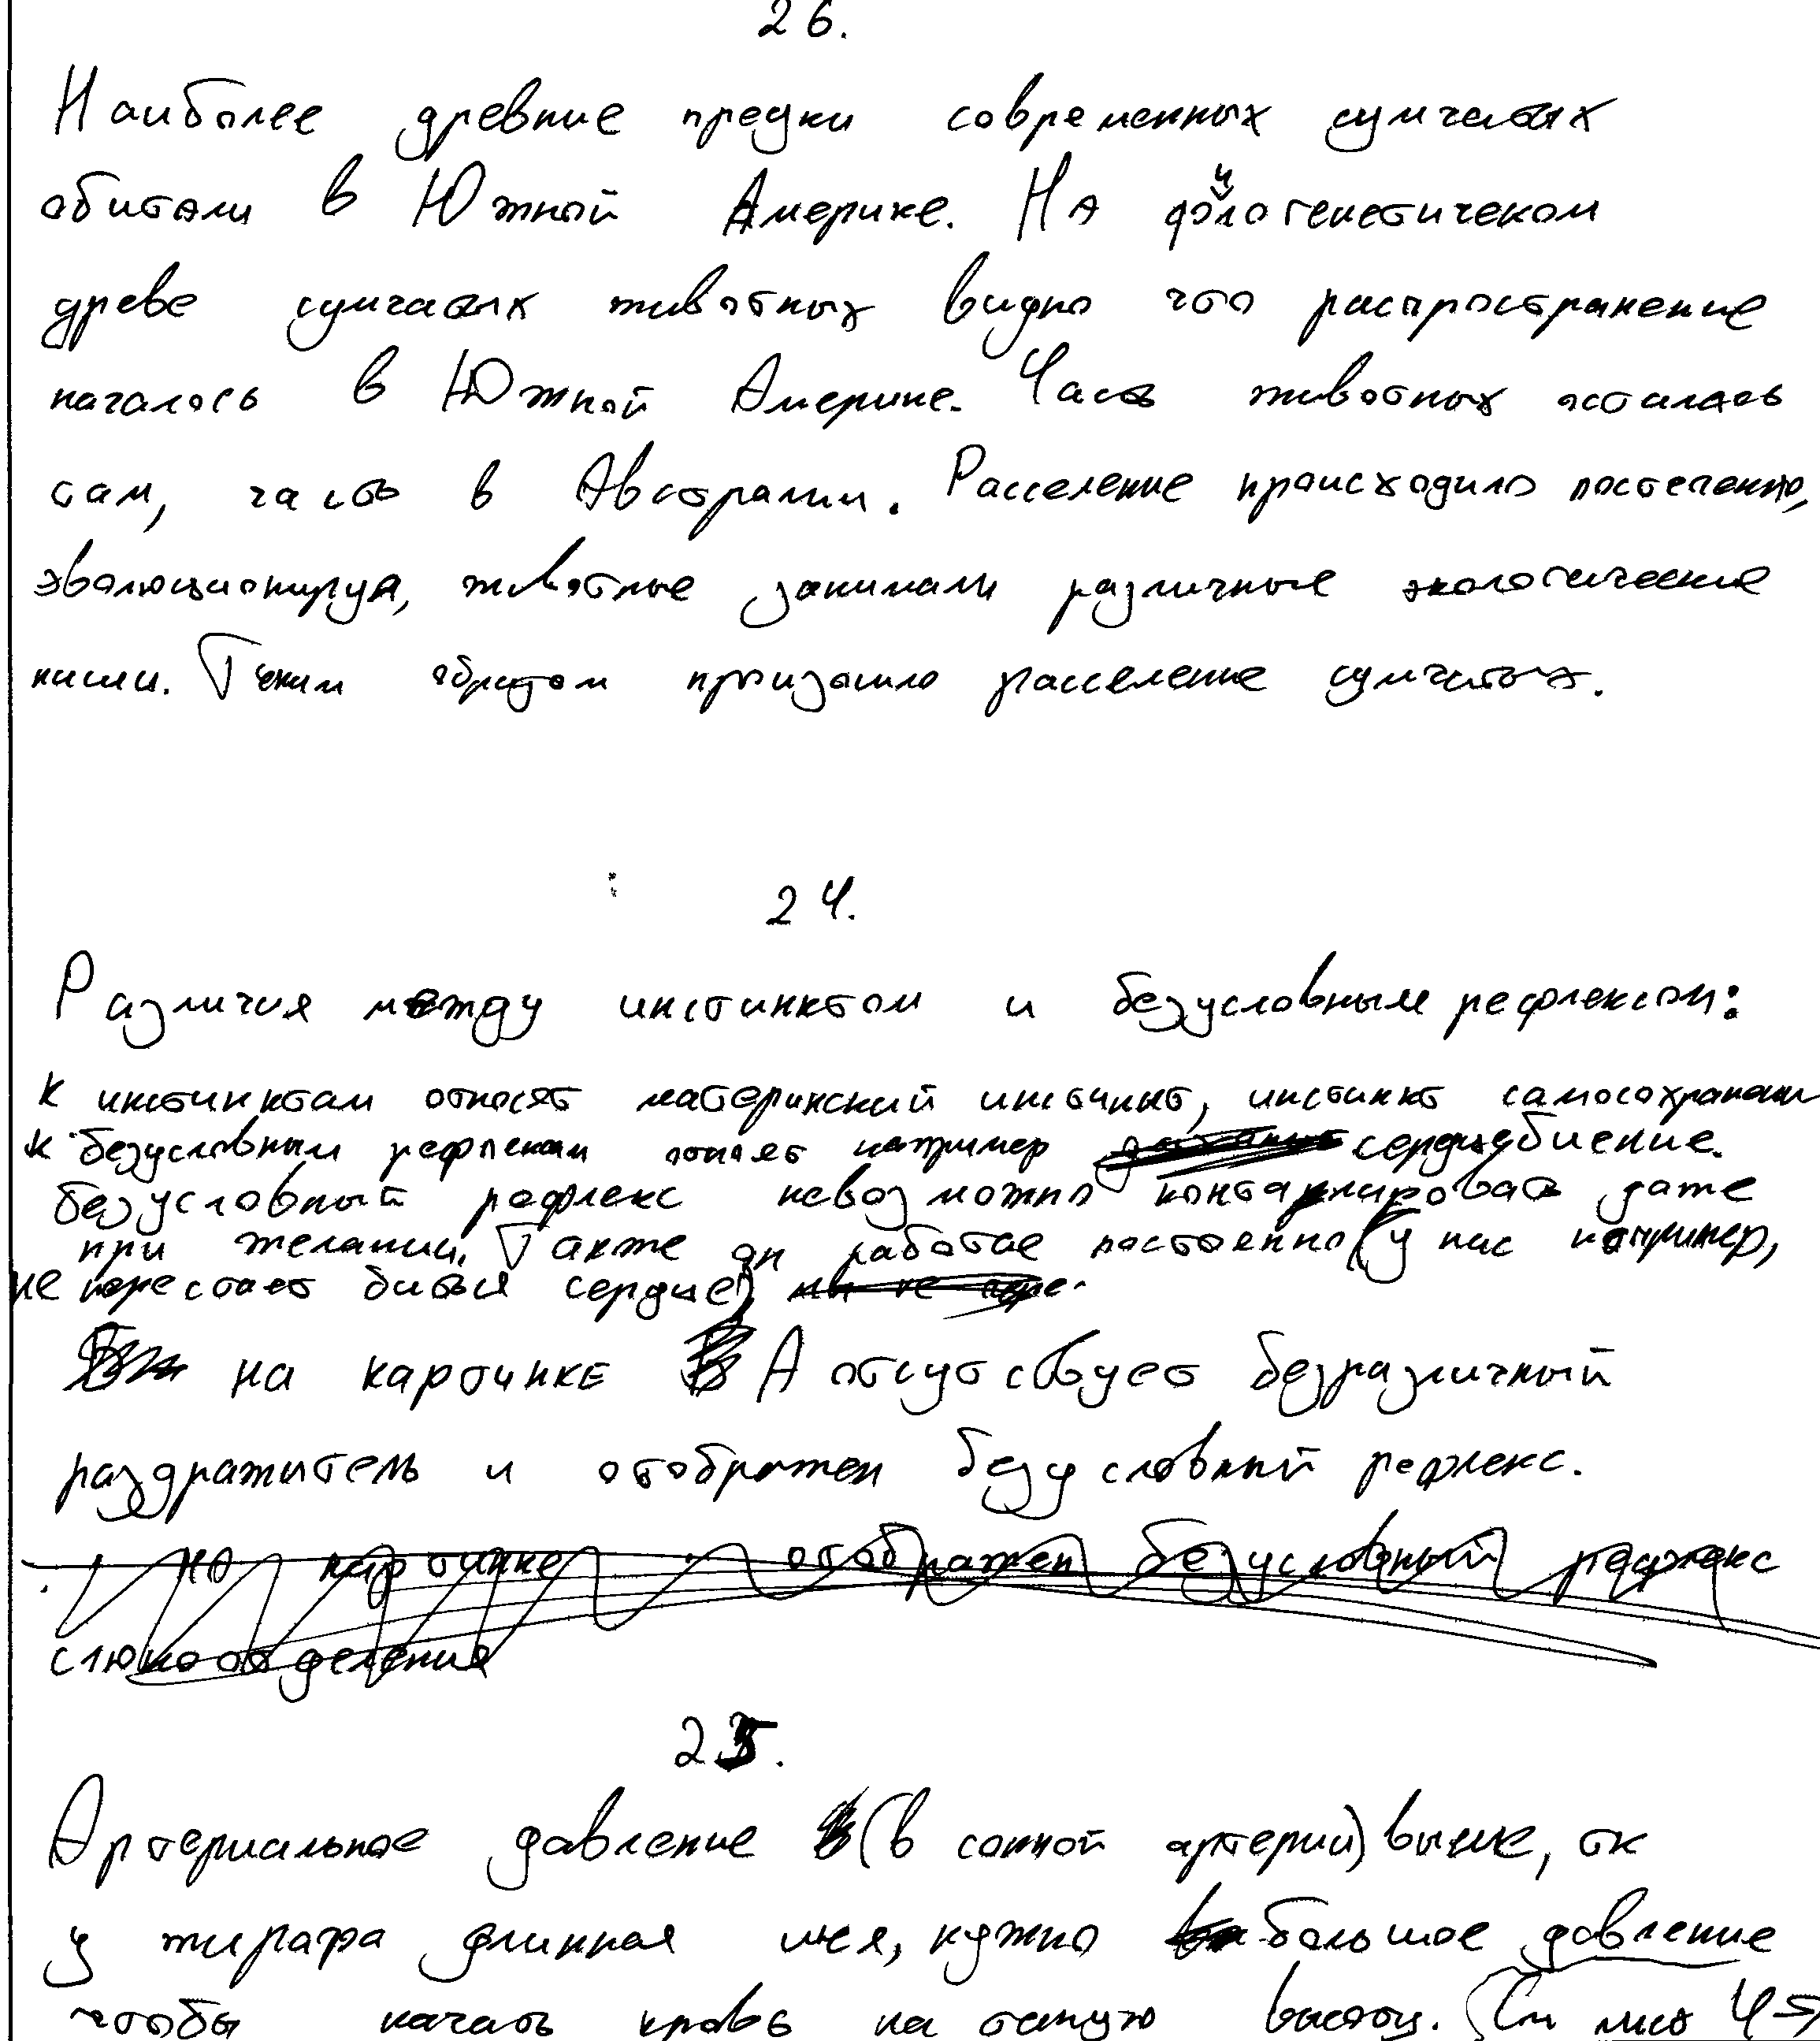 26.
Наиболее древние предки современных сумчатых
обитали в Южной Америке. На филогенетичеком
древе сумчатых животных видно что распространение
началось в Южной Америке. Часть животных осталась
там, часть в Австралии. Расселение происходило постепенно,
эволюционируя, животные занимали различные экологические
ниши. Таким образом произошло расселение сумчатых.
24.
Различия между инстинктом и безусловным рефлексом:
К инстинктам относят материнский инстинкт, инстинкт самосохранения
К безусловным рефлексам относят например сердцебиение.
безусловный рефлекс невозможно контралировать даже
при желании. Также он работае постоянно (у нас например,
не перестает биться сердце)
на картинке А отсутствует безразличный
раздражитель и отображен безусловный рефлекс.
на картинке отображен безусловный рефлекс
слюноотделения
25.
Артериальное давление (в сонной артерии) выше, тк
у жирафа длинная шея, нужно большое давление
чтобы качать кровь на такую высоту. (См лист 4→